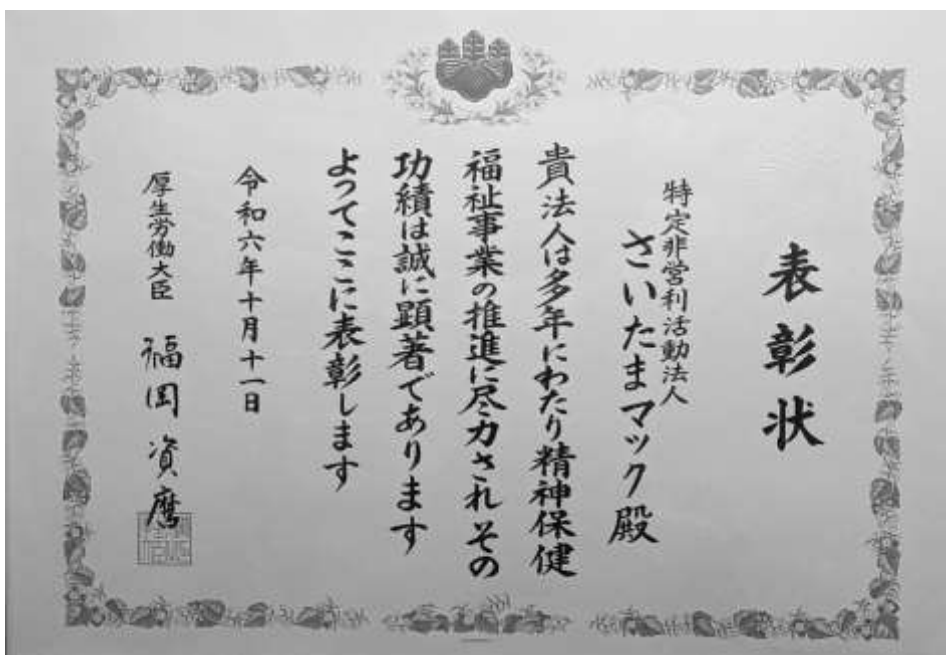 表彰状
特定非営利活動法人
さいたまマック殿
貴法人は多年にわたり精神保健
福祉事業の推進に尽力されその
功績は誠に顕著であります
よってここに表彰します
令和六年十月十一日
厚生労働大臣 福岡資麿